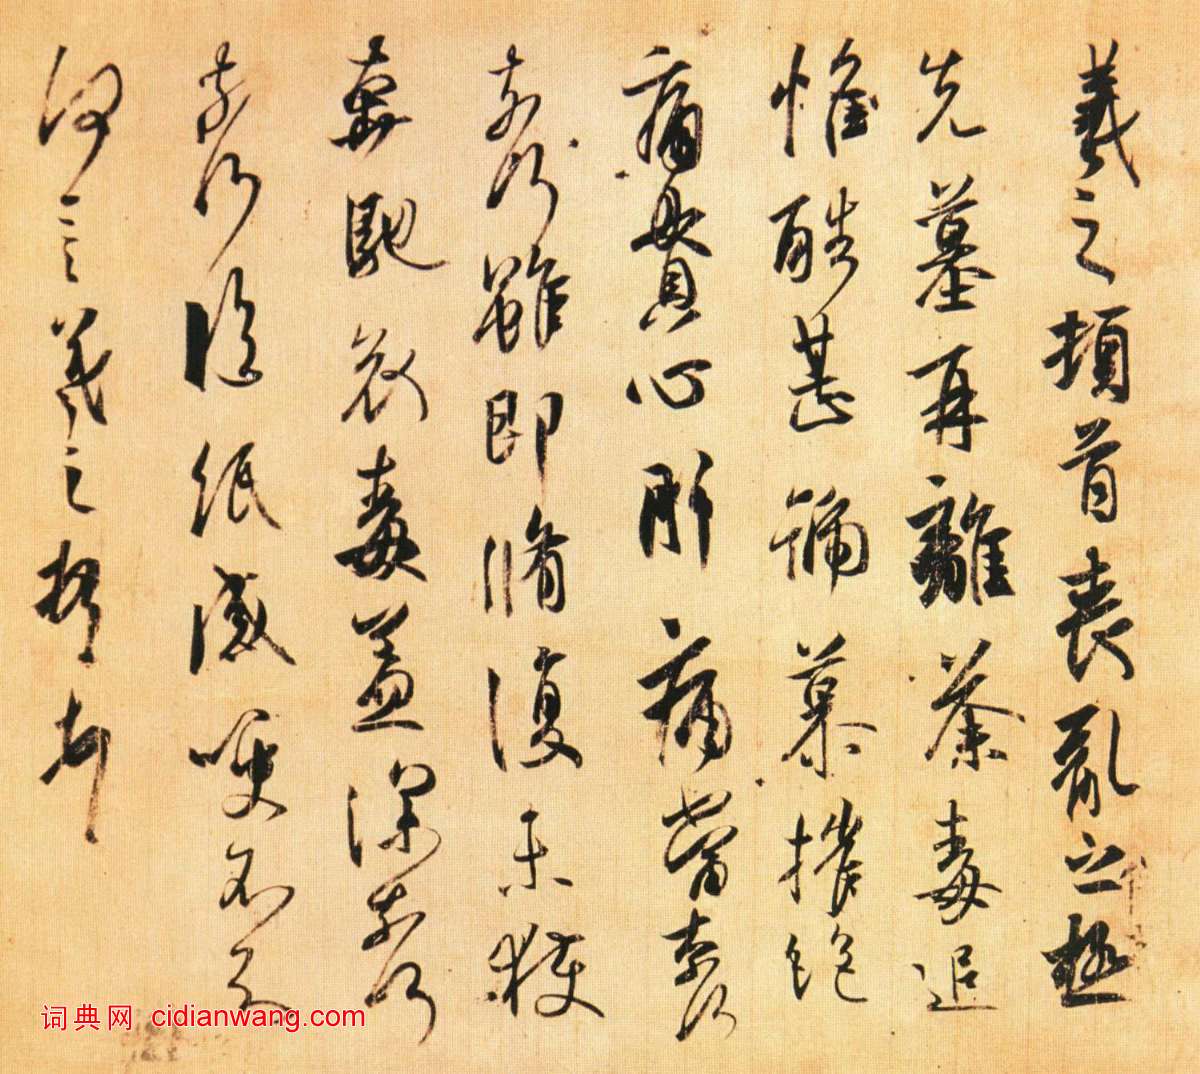 羲之頓首喪亂之極
先墓再離荼毒追
惟酷甚號慕摧絕
痛貫心肝痛當奈何
奈何雖即脩復未獲
奔馳哀毒益深奈何
奈何臨紙感哽不知
何言羲之頓首頓首
词典网 cidianwang.com